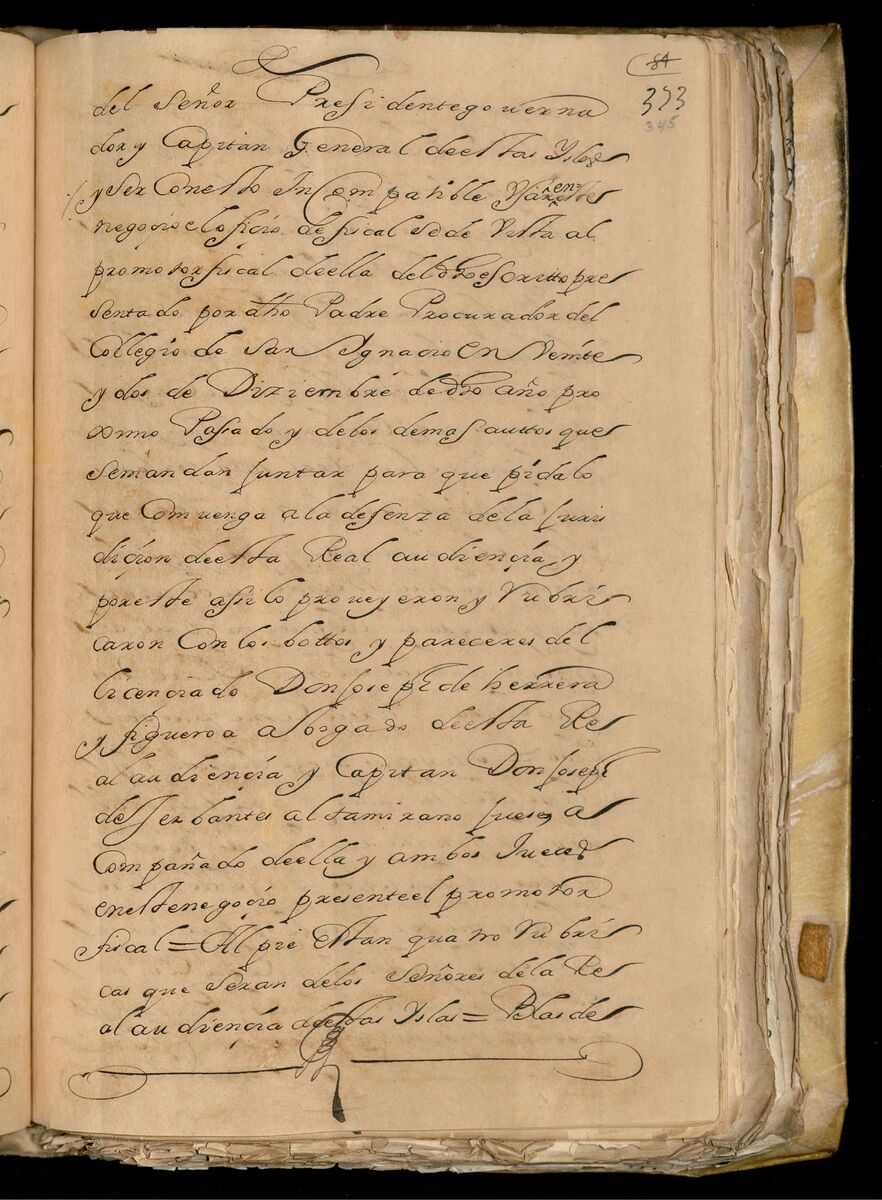 84
333
345
del Señor Presidente gouerna
dor y Capitan General de estas Yslas
y ser Con esto Incompatible en este
negocio el oficio de fiscal se de Vista al
promotor fiscal de ella del dho escritto pre
sentado por dho Padre Procurador del
Collegio de San Ygnacio en Veinte
y dos de Diziembre de dho año pro
ximo Passado y de los demas auttos que
se mandan juntar para que pida lo
que Comuenga a la defenza de la juris
diçion de esta Real audiençia, y
por este assi lo proueyeron y Rubri
caron Con los bottos y pareceres del
licençiado Don Joseph de herrera
y figueroa abogado de esta Re
al audiençia y Capitan Don Joseph
de Serbantes altamirano jues a
Compañado de ella y ambos Jueces
en este negoçio presente el promotor
fiscal = Al pie estan quatro Rubri
cas que seran de los Señores de la Re
al audiençia de estas Yslas = Blas de